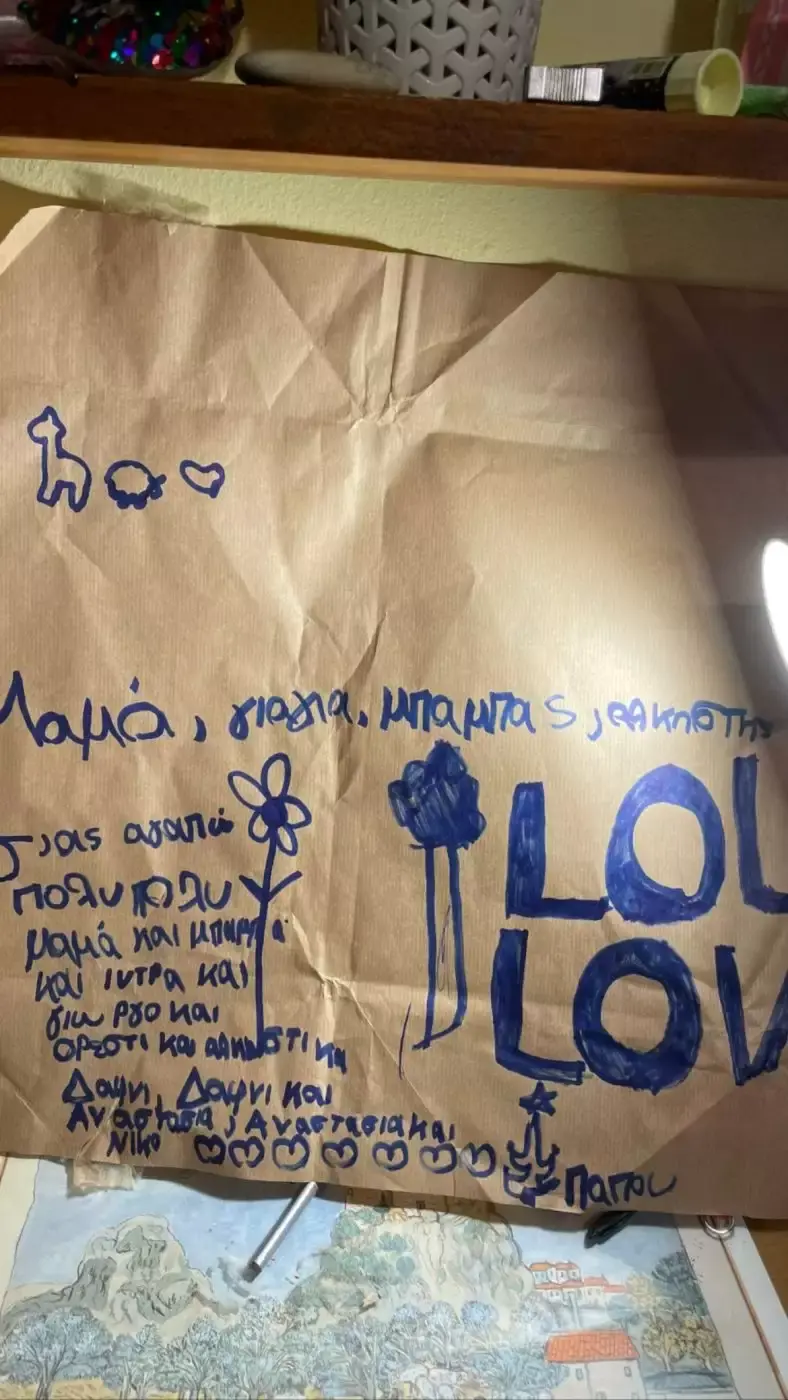 Μαμά, γιαγια, μπαμπας, αλκηστης
LOV
LOV
σιας αγαπώ
πολυ πολυ
μαμά και μπαμπα
και ιντρα και
γιωργο και
ορεστι και αλκιστι κη
Δαφνι, Δαφνι και
Αναστασια, Αναστασια και
Νικο
παπου